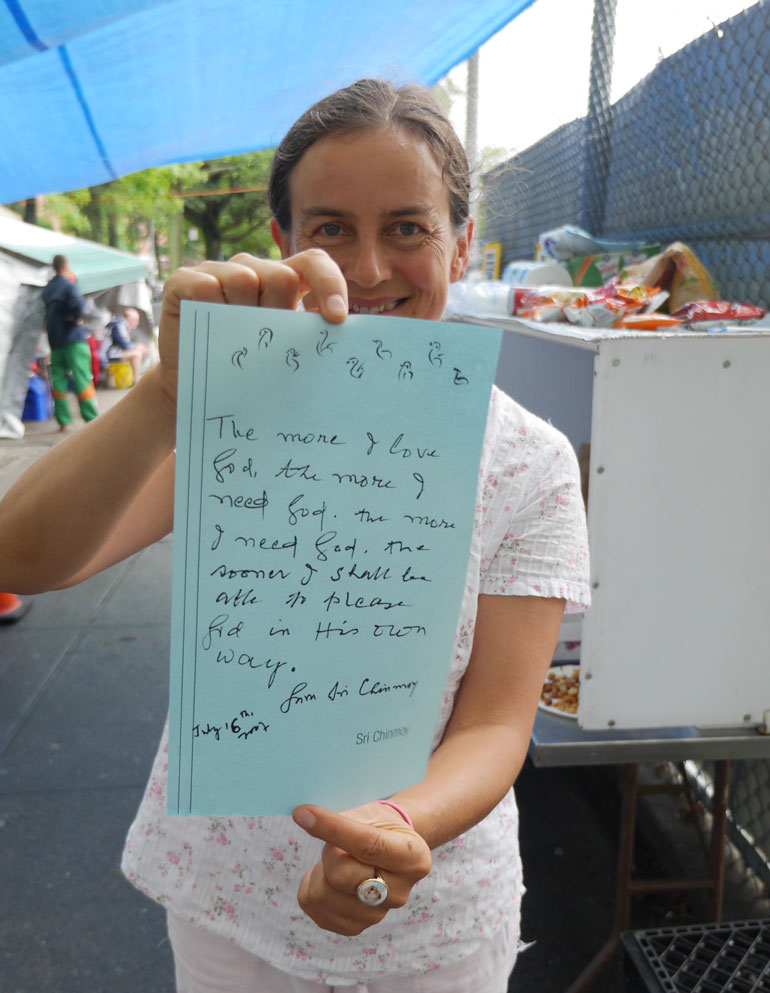 The more I love
God, the more I
need God. the more
I need God, the
sooner I shall be
able to please
God in His own
way.
from Sri Chinmoy
July 16th
Sri Chinmoy